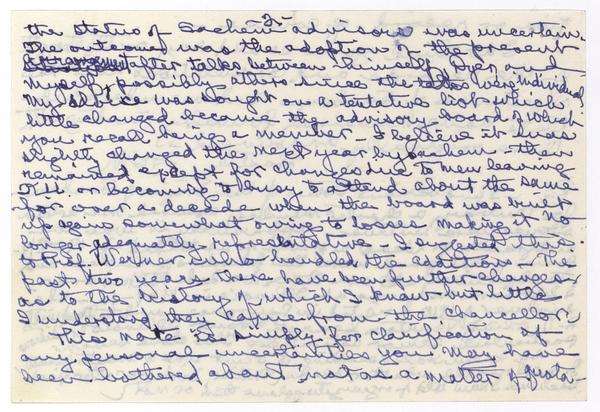 -2-
the status of Sachem advisors was uncertain.
The outcome was the adoption of the present
arrangement after talks between himself, Dyer and
myself, possibly others since the talks were individual
My advice was sought on a tentative list which
little changed became the advisory board of which
you recall being a member - I believe it was
slightly changed the next year by Sachem - then
remained except for changes due to men leaving
or becoming to busy to attend about the same
for over a decade when the board was built
up again somewhat owing to losses making it no
longer adequately representative - I suggested this
to Prof. Werner who handled the adoptions - The
past two years there have been further changes
as to the history of which I know but little
I understand they came from the chancellor.
This note is simply for clarification of
any personal uncertainties you may have
been bothered about, not as a matter of quota-